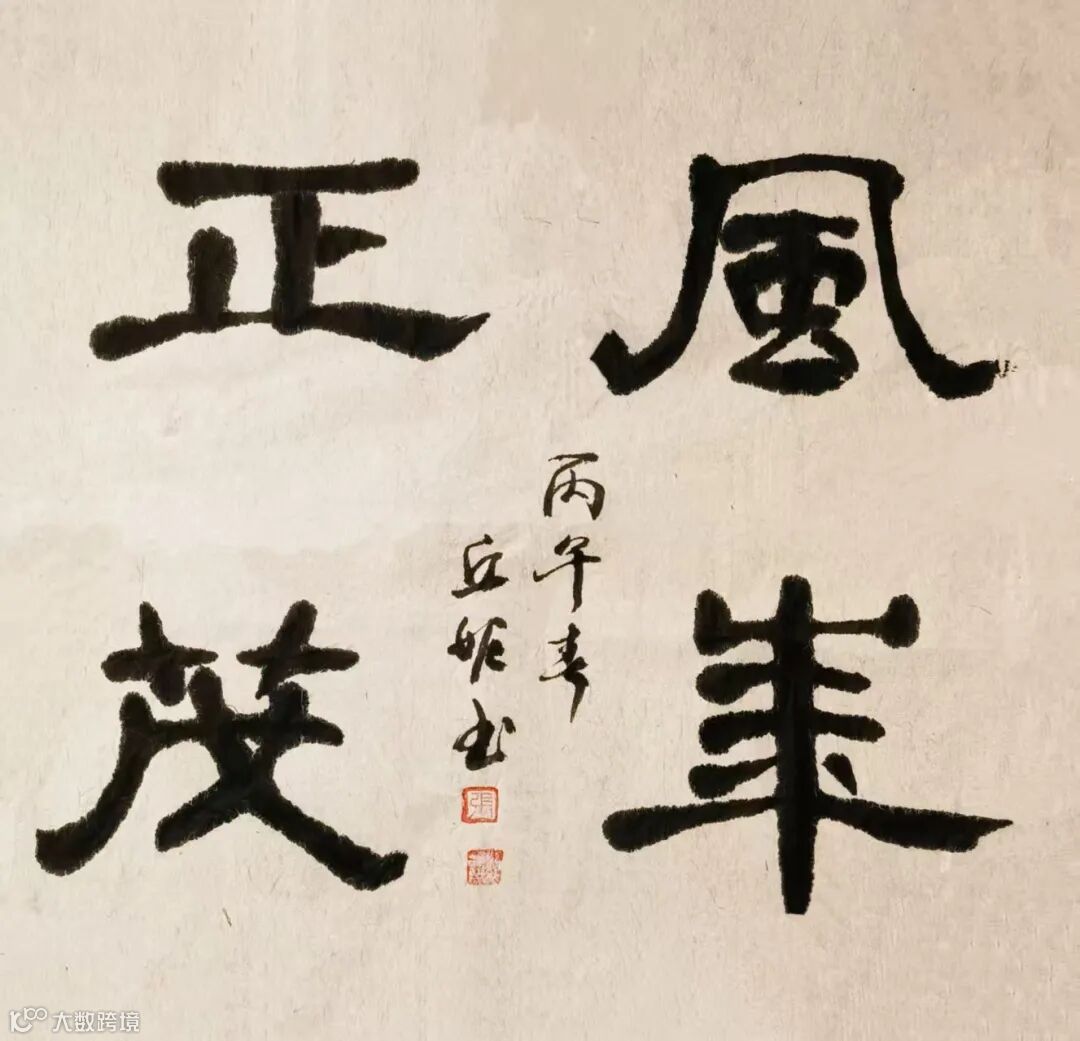 風華
正茂
丙午春
丘书
張
大数跨境